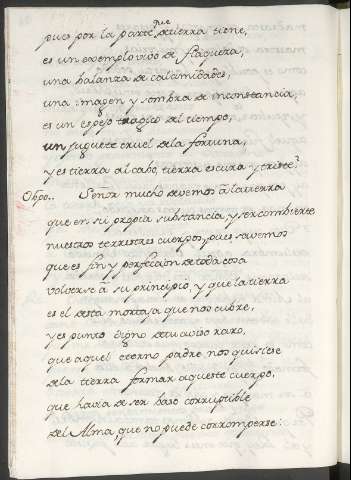 que
pues por la parte de tierra tiene,
es un exemplo vivo de flaqueza,
una balanza de calamidades,
una imagen y sombra de inconstancia,
es un espejo tragico del tiempo,
un juguete cruel de la fortuna,
y es tierra al cabo, tierra escura y triste.
Obpo.. Señor mucho devemos a la tierra
que en su propria substancia, y ser combierte
nuestros terrestres cuerpos, pues savemos
que es fin y perfeccion de toda cosa
volverse a su principio, y que la tierra
es el desta mortaja que nos cubre,
y es punto digno de tu aviso raro,
que aquel eterno padre nos quisiese
de la tierra formar aqueste cuerpo,
que havia de ser baso corruptible
del Alma, que no puede corromperse: